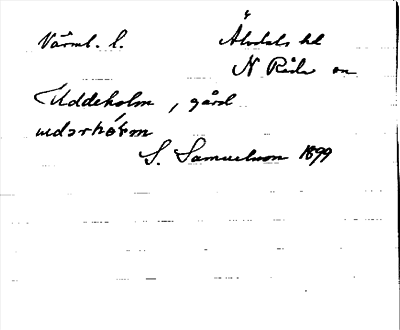 Värml. l. Älvdals hd
N Råda sn
Uddeholm, gård
udərhɵ́ɫm
S. Samuelsson 1899